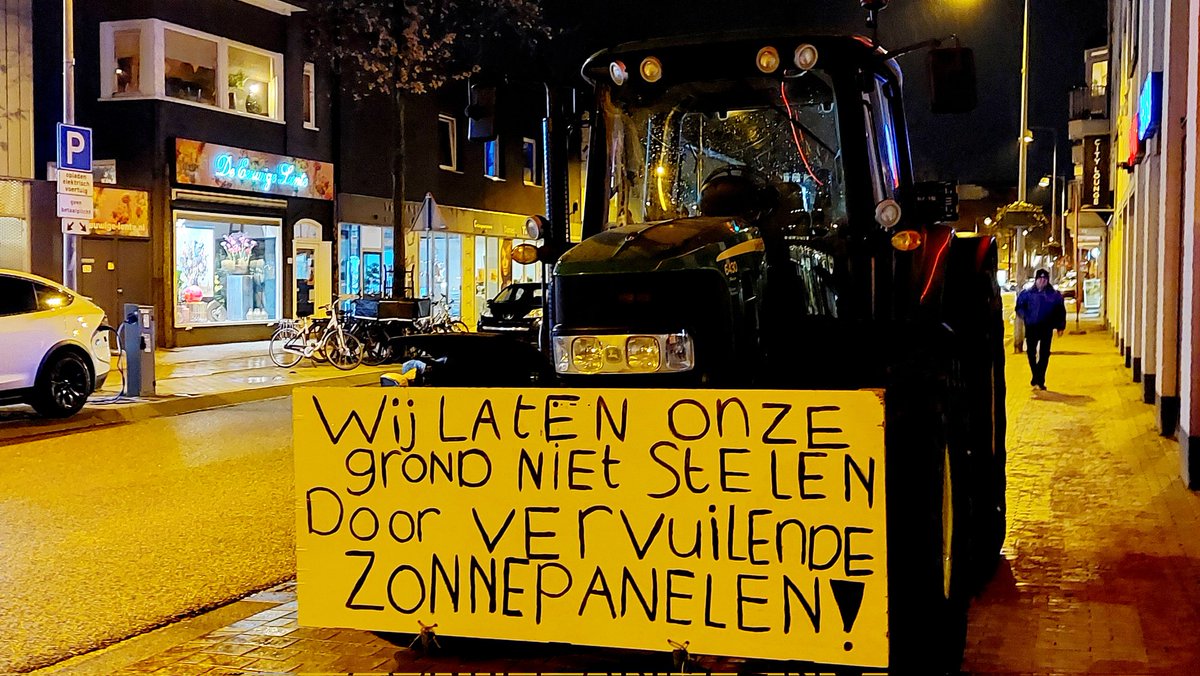 P
opladen
elektrisch
voertuig
geen
betaalplicht
De Eeuwige Lente
CITY LOUNGE
Wij LATEN ONZE
grond Niet StELEN
Door VERVuiLENDE
ZONNEPANELEN!